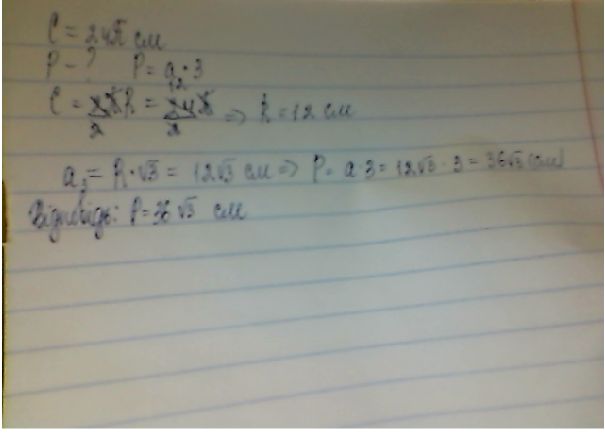 C = 24π см
P - ? P = a₃ · 3
C = 2πR = 24π => R = 12 см
12
2 2
a₃ = R · √3 = 12√3 см => P = a · 3 = 12√3 · 3 = 36√3 (см)
Відповідь: P = 36√3 см